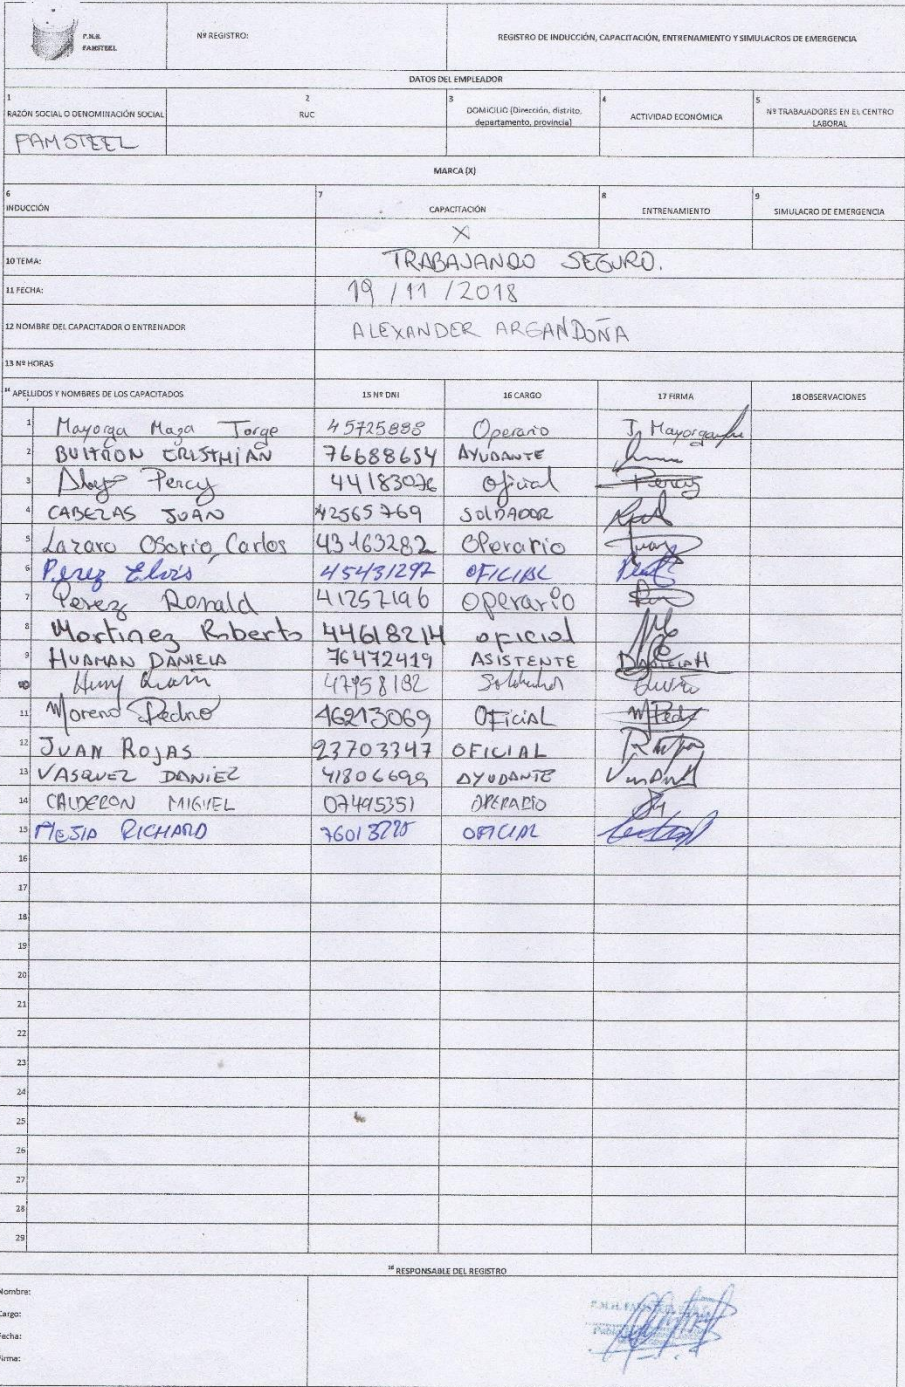 F.M.H. FAMSTEEL
Nº REGISTRO:
REGISTRO DE INDUCCIÓN, CAPACITACIÓN, ENTRENAMIENTO Y SIMULACROS DE EMERGENCIA
DATOS DEL EMPLEADOR
1 RAZÓN SOCIAL O DENOMINACIÓN SOCIAL
2 RUC
3 DOMICILIO (Dirección, distrito, departamento, provincia)
4 ACTIVIDAD ECONÓMICA
5 Nº TRABAJADORES EN EL CENTRO LABORAL
FAMSTEEL
MARCA (X)
6 INDUCCIÓN
7 CAPACITACIÓN
8 ENTRENAMIENTO
9 SIMULACRO DE EMERGENCIA
X
10 TEMA: TRABAJANDO SEGURO.
11 FECHA: 19/11/2018
12 NOMBRE DEL CAPACITADOR O ENTRENADOR ALEXANDER ARGANDOÑA
13 Nº HORAS
14 APELLIDOS Y NOMBRES DE LOS CAPACITADOS 15 Nº DNI 16 CARGO 17 FIRMA 18 OBSERVACIONES
1 Mayorga Maga Jorge 45725888 Operario J. Mayorga
2 BUITRON CRISTHIAN 76688654 AYUDANTE
3 Percy 44183036 Oficial Percy
4 CABEZAS JUAN 42565769 SOLDADOR
5 Lazaro Osorio, Carlos 43163282 Operario
6 Perez Elvis 45431297 OFICIAL
7 Perez Ronald 41257196 operario
8 Martinez Roberto 44618214 oficial
9 HUAMAN DANIELA 76472419 ASISTENTE DANIELA H
10 47958182
11 Moreno Pedro 46213069 Oficial
12 JUAN ROJAS 23703347 OFICIAL
13 VASQUEZ DANIEL 41806699 AYUDANTE
14 CALDERON MIGUEL 07495351 OPERARIO
15 MESIA RICHARD OFICIAL
16
17
18
19
20
21
22
23
24
25
26
27
28
29
RESPONSABLE DEL REGISTRO
Nombre:
Cargo:
Fecha:
Firma: